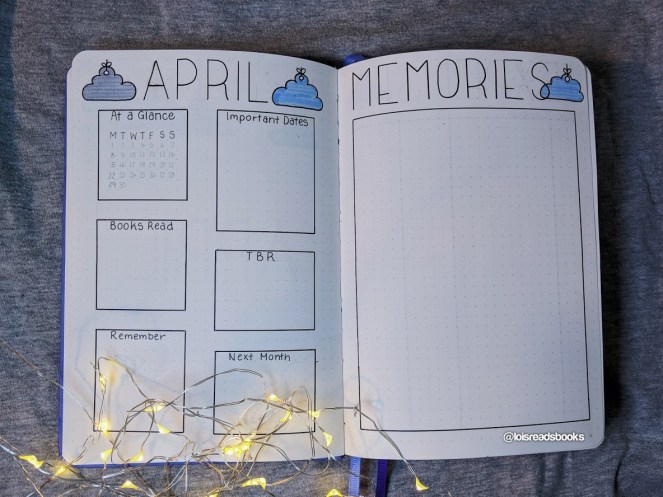 APRIL
At a Glance
M T W T F S S
1 2 3 4 5 6 7
8 9 10 11 12 13 14
15 16 17 18 19 20 21
22 23 24 25 26 27 28
29 30
Important Dates
Books Read
TBR
Remember
Next Month
MEMORIES
@loisreadsbooks